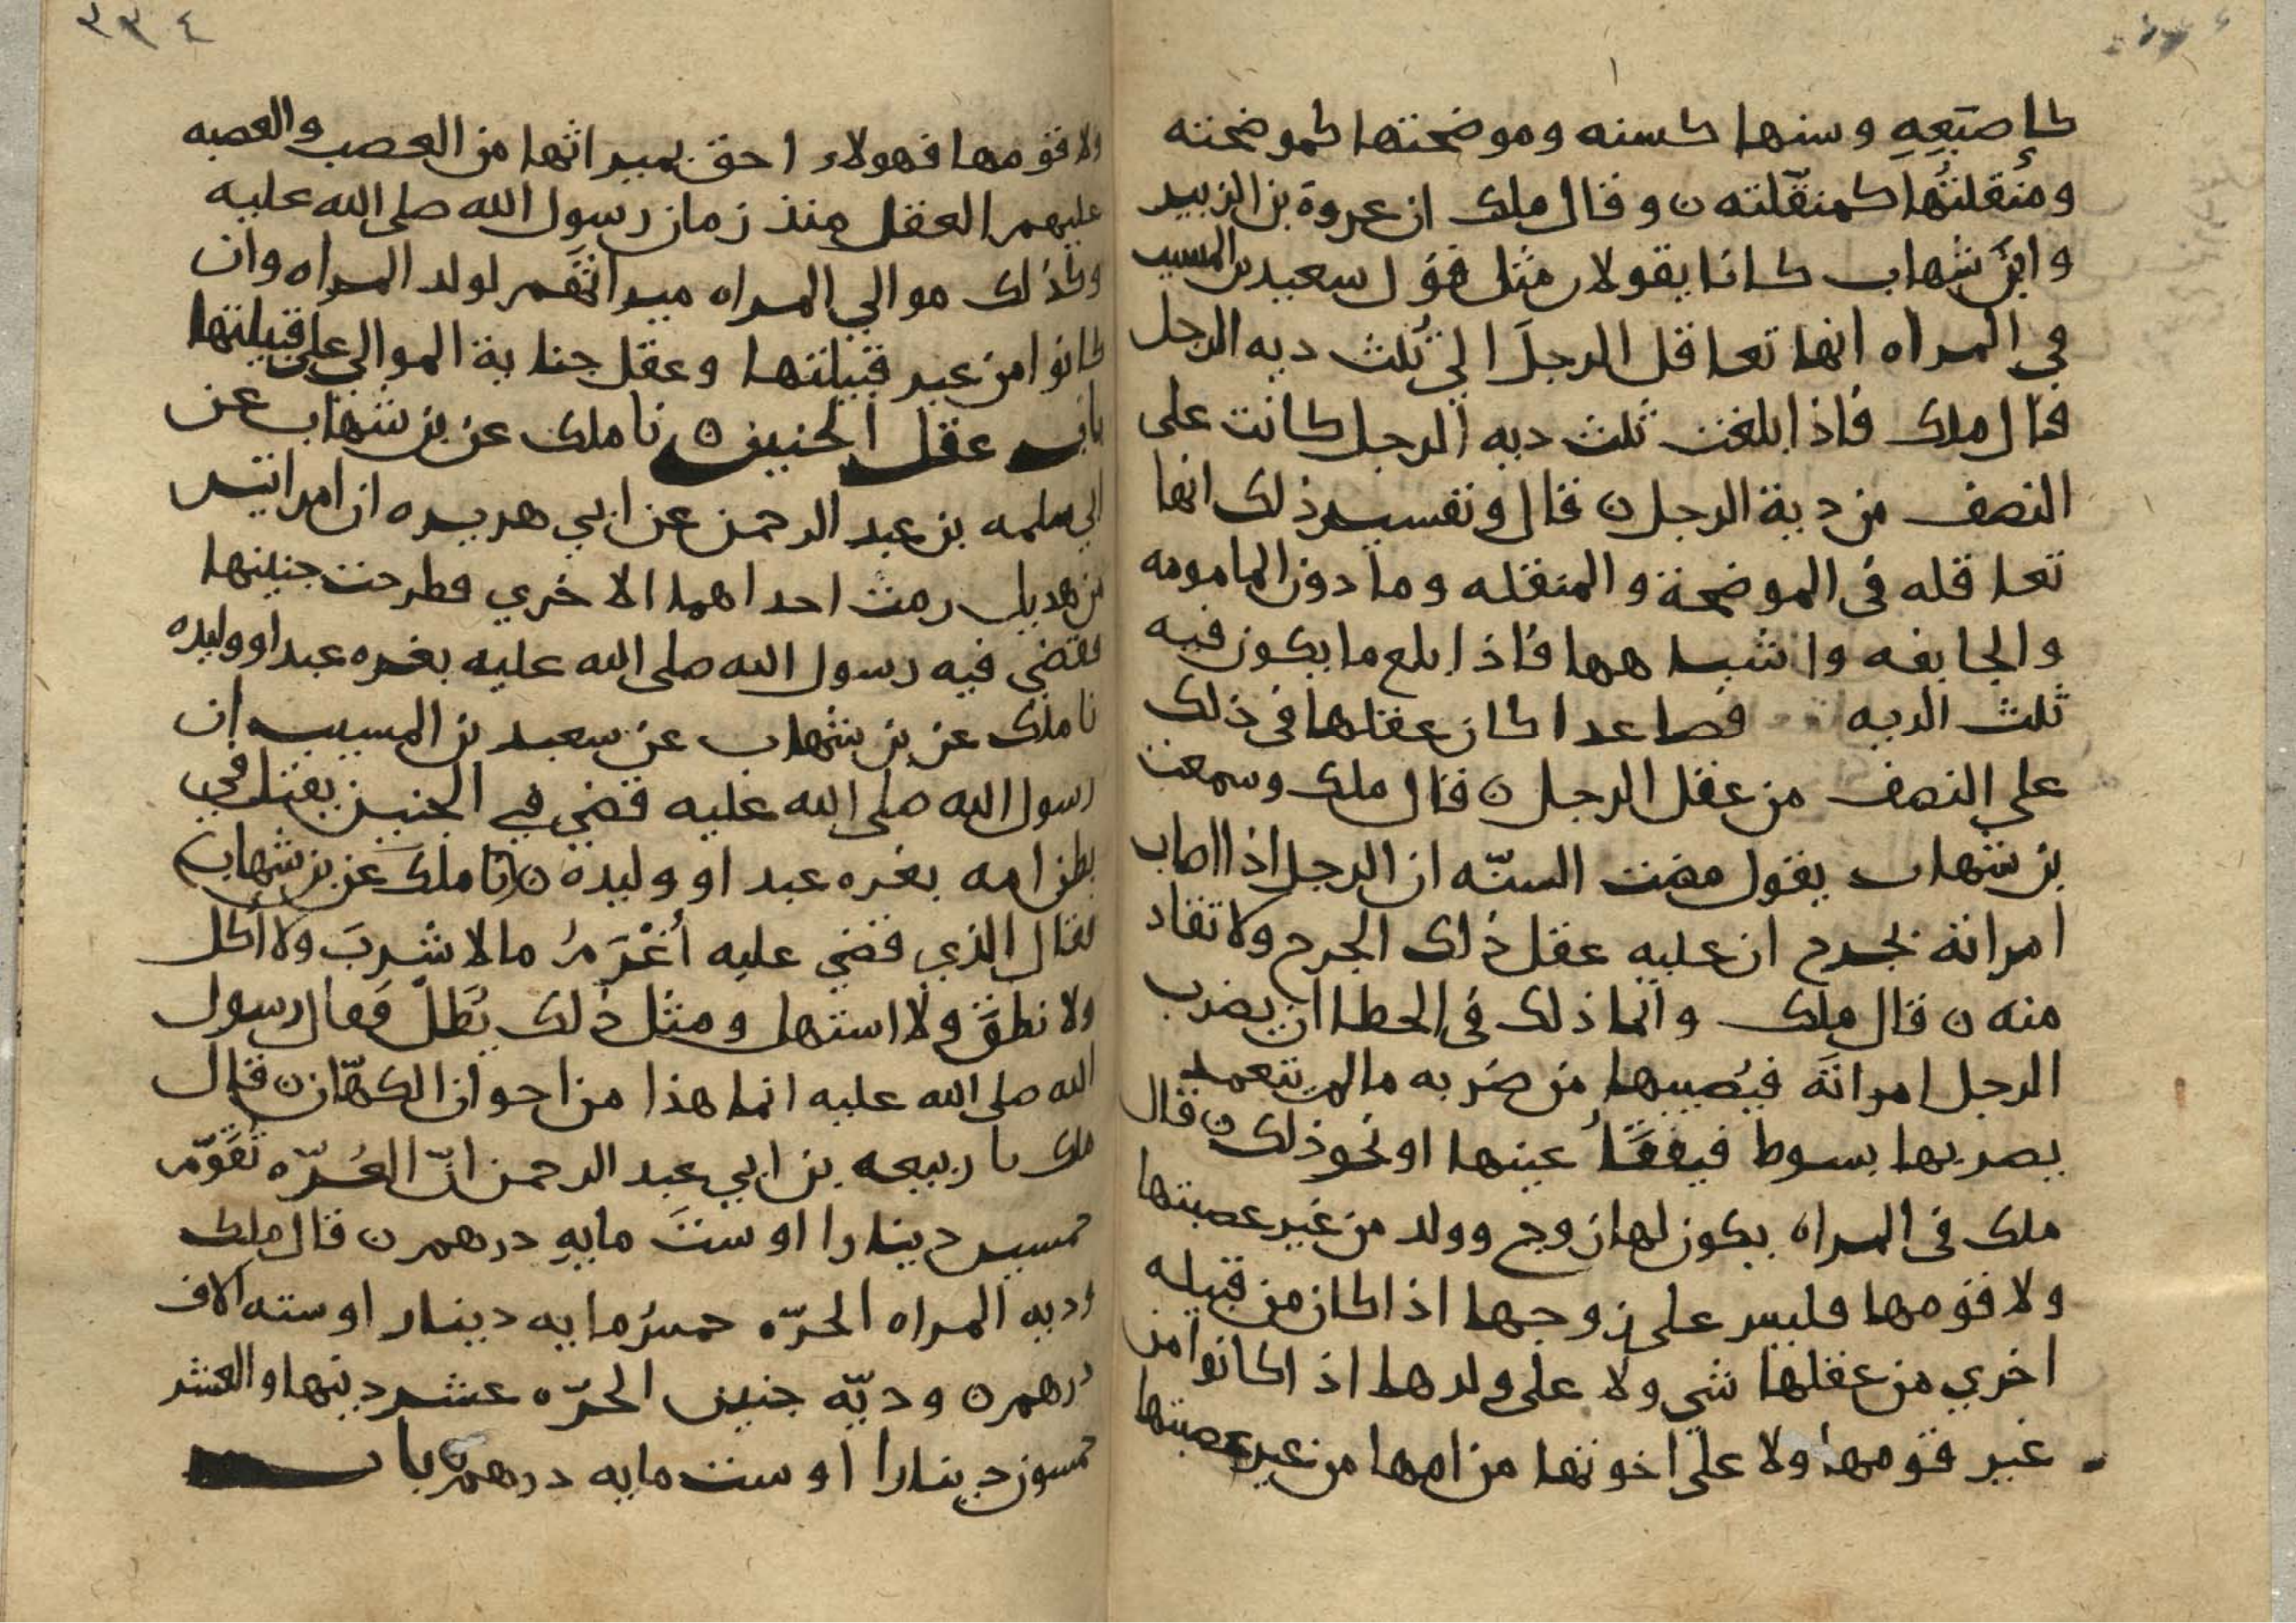 كإصبَعِهِ وسنها كسنه وموضحتها كموضحته
ومُنقلتُها كمنقّلته ن وقال ملك ان عروة بن الزبير
وابنَ شهاب كانا يقولان مثل قول سعيد بن المسيب
في المراه انها تعاقل الرجلَ الي ثُلث ديه الرجل
قال ملك فاذا بلغت ثلث ديه الرجل كانت على
النصف من دية الرجل ن قال وتفسير ذلك انها
تعاقله في الموضحة والمنقله وما دون المامومه
والجايفه واشباهها فاذا بلغ ما يكون فيه
ثلث الديه فصاعدا كان عقلها في ذلك
علي النصف من عقل الرجل ن قال ملك وسمعت
بن شهاب يقول مضت السنّه ان الرجل اذا اصاب
امراته بجرح ان عليه عقل ذلك الجرح ولا تقاد
منه ن قال ملك وانما ذلك في الخطا ان يضرب
الرجل امراتَه فيُصيبها من ضَربه مالم يتعمد
يضربها بسوط فيفقَأُ عينها او نحو ذلك ن قال
ملك في المراه يكون لها زوج وولد من غير عصبتها
ولا قومها فليس على زوجها اذا كان من قبيله
اخري من عقلها شي ولا على ولدها اذا كانوا من
غير قومها ولا علي اخوتها من امها من غير عصبتها
٣٣٤
ولا قومها فهولاء احق بميراثها من العصب والعصبه
عليهم العقل منذ زمان رسول الله صلى الله عليه
وكذلك موالي المراه ميراثهم لولد المراه وان
كانوا من غير قبيلتها وعقل جناية الموالي على قبيلتها
باب عقل الجنين ن نا ملك عن بن شهاب عن
ابي سلمه بن عبد الرحمن عن ابي هريره ان امراتين
من هذيل رمت احداهما الاخري فطرحت جنينها
فقضي فيه رسول الله صلى الله عليه بغره عبد او وليده
نا ملك عن بن شهاب عن سعيد بن المسيب ان
رسول الله صلى الله عليه قضي في الجنين يقتل في
بطن امه بغره عبد او وليده ن نا ملك عن بن شهاب
فقال الذي قضي عليه أغْرَمُ مالا شَرِبَ ولا أكل
ولا نطقَ ولا استهل ومثل ذلك يُطَلّ فقال رسول
الله صلى الله عليه انما هذا من اخوان الكهّان ن قال
ملك نا ربيعه بن ابي عبد الرحمن انّ الغُرّه تُقَوّم
خمسين دينارا او ستَ مايهِ درهم ن قال ملك
وديه المراه الحرّه خمسُ مايه دينار او سته الاف
درهم ن وديّه جنين الحرّه عشر ديتها والعشر
خمسون دينارا او ست مايه درهم ن باب